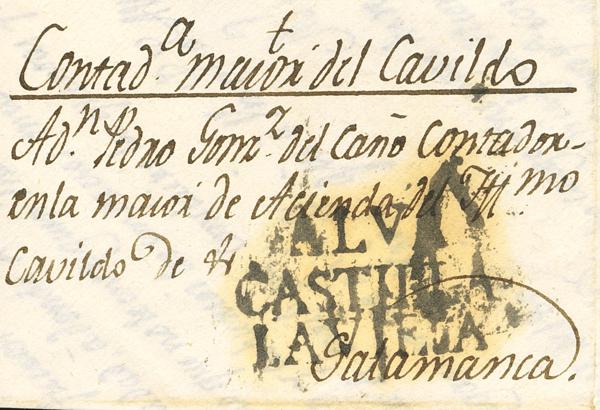 Contad.ª maior del Cavildo
Ad.ⁿ Pedro Gonz.ᶻ del Caño Contador
en la maior de Acienda del Ill.ᵐᵒ
Cavildo de &
ALVA
CASTILLA
LA VIEJA
Salamanca.